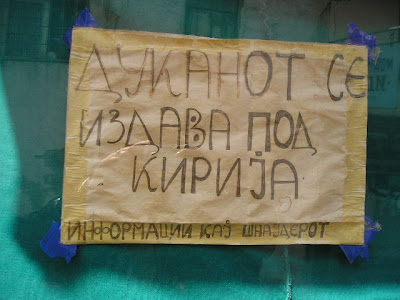 ДУКАНОТ СЕ
ИЗДАВА ПОД
КИРИЈА
ИНФОРМАЦИИ КАЈ ШНАЈДЕРОТ